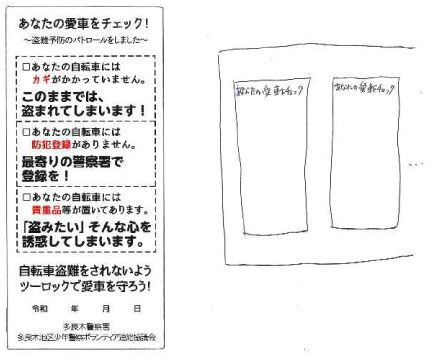 あなたの愛車をチェック!
～盗難予防のパトロールをしました～
□あなたの自転車には
カギがかかっていません。
このままでは、
盗まれてしまいます!
□あなたの自転車には
防犯登録がありません。
最寄りの警察署で
登録を!
□あなたの自転車には
貴重品等が置いてあります。
「盗みたい」そんな心を
誘惑してしまいます。
自転車盗難をされないよう
ツーロックで愛車を守ろう!
令和　年　月　日
多良木警察署
多良木地区少年警察ボランティア連絡協議会
あなたの愛車チェック
あなたの愛車チェック